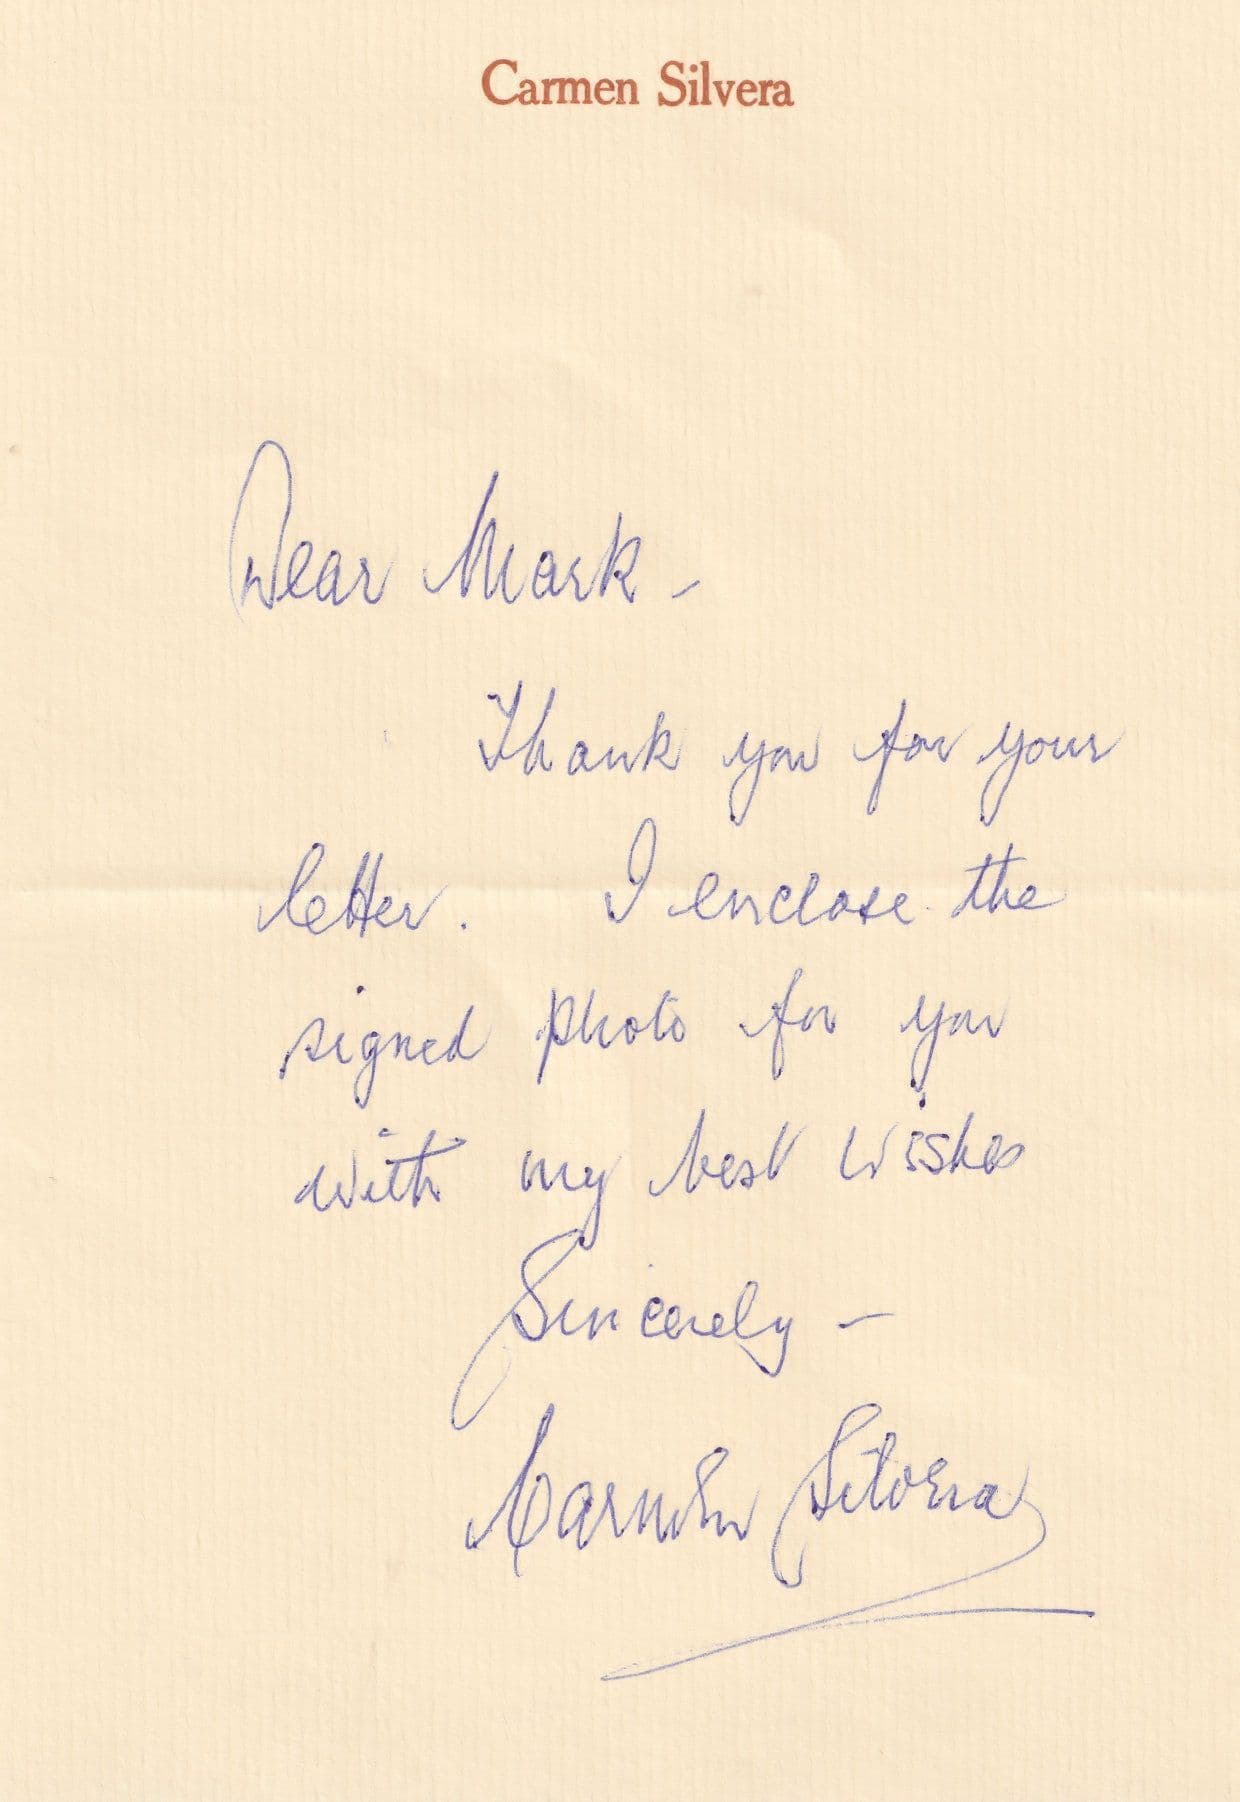 Carmen Silvera
Dear Mark -
Thank you for your
letter. I enclose the
signed photo for you
with my best wishes
Sincerely -
Carmen Silvera